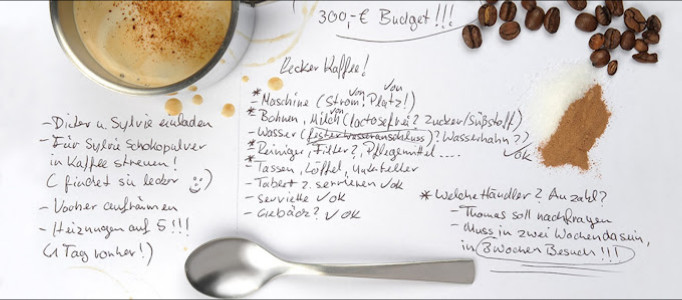 300,-€ Budget!!!
Lecker Kaffee!
* Maschine (Strom! Platz!)
von von
* Bohnen, Milch (lactosefrei? Zucker/Süßstoff)
von
- Wasser (fister Wasseranschluss)? Wasserhahn?)
* Reiniger, Filter?, Pflegemittel.... ✓OK
* Tassen, Löffel, Unterteller
- Tablett z. servieren ✓OK
- Serviette ✓OK
- Gebäck? ✓OK
- Dieter u. Sylvie einladen
- Für Sylvie Schokopulver
in Kaffee streuen!
( findet sie lecker :-)
- Vorher aufräumen
- Heizungen auf 5!!!
(1 Tag vorher!)
* Welche Händler? Anzahl?
- Thomas soll nachfragen
- Muss in zwei Wochen da sein,
in 3 Wochen Besuch!!!